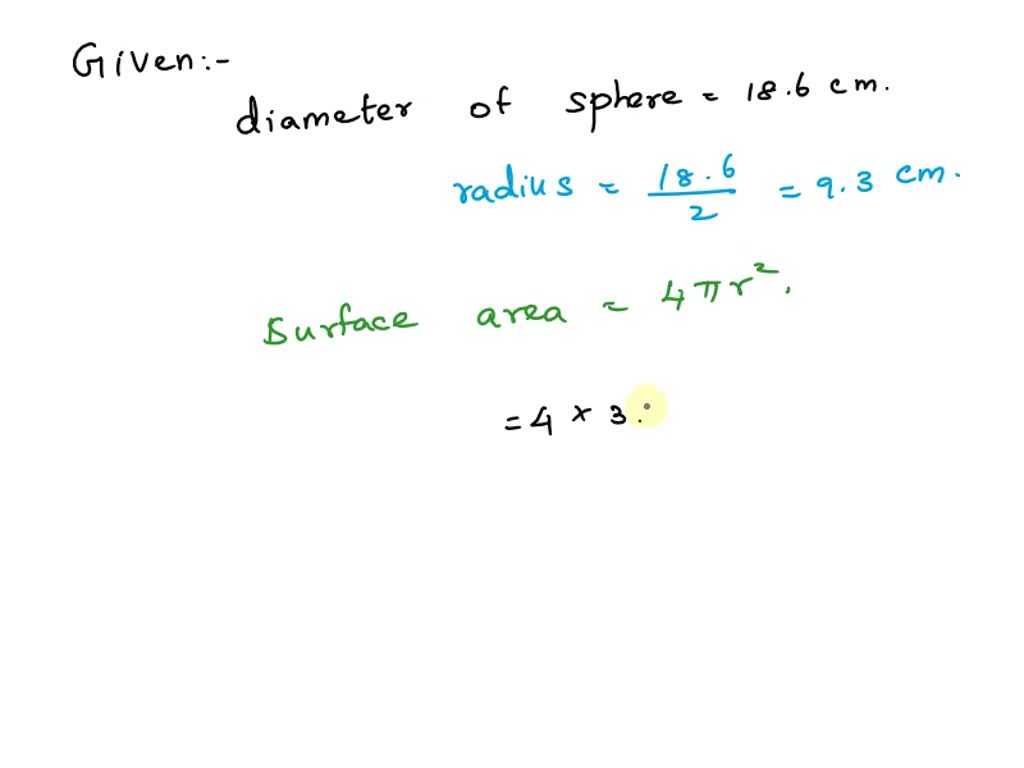 Given:-
diameter of sphere = 18.6 cm.
radius = 18.6/2 = 9.3 cm.
Surface area = 4πr².
= 4 × 3.